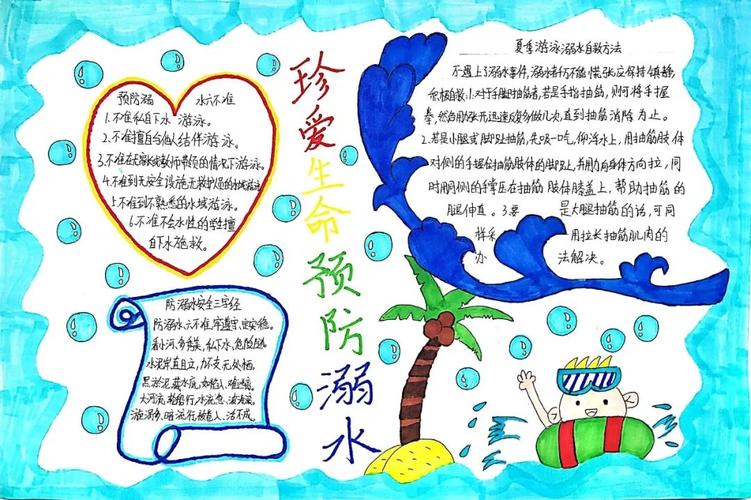 珍爱生命预防溺水
预防溺 水六不准
1.不准私自下水游泳。
2.不准擅自与他人结伴游泳。
3.不准在无家长或教师带领的情况下游泳。
4.不准到无安全设施无救护员的水域游泳
5.不准到不熟悉的水域游泳。
6.不准不会水性的学生擅
自下水施救。
防溺水安全三字经
防溺水六不准,牢遵守,
水泥岸直且立,
大河流
夏季游泳溺水自救方法
不遇上了溺水事件,溺水者仍不能慌张,应保持镇静,
积极自救:1.对于手脚抽筋者,若是手指抽筋,则可将手握
拳,然后用力张开,迅速反复多做几次,直到抽筋消除为止。
2.若是小腿或脚趾抽筋,先吸一口气,仰浮水上,用抽筋肢体
对侧的手握住抽筋肢体的脚趾,并用力向身体方向拉,同
时用同侧的手掌压在抽筋肢体膝盖上,帮助抽筋的
腿伸直。3.要 是大腿抽筋的话,可同
样采 用拉长抽筋肌肉的
办 法解决。